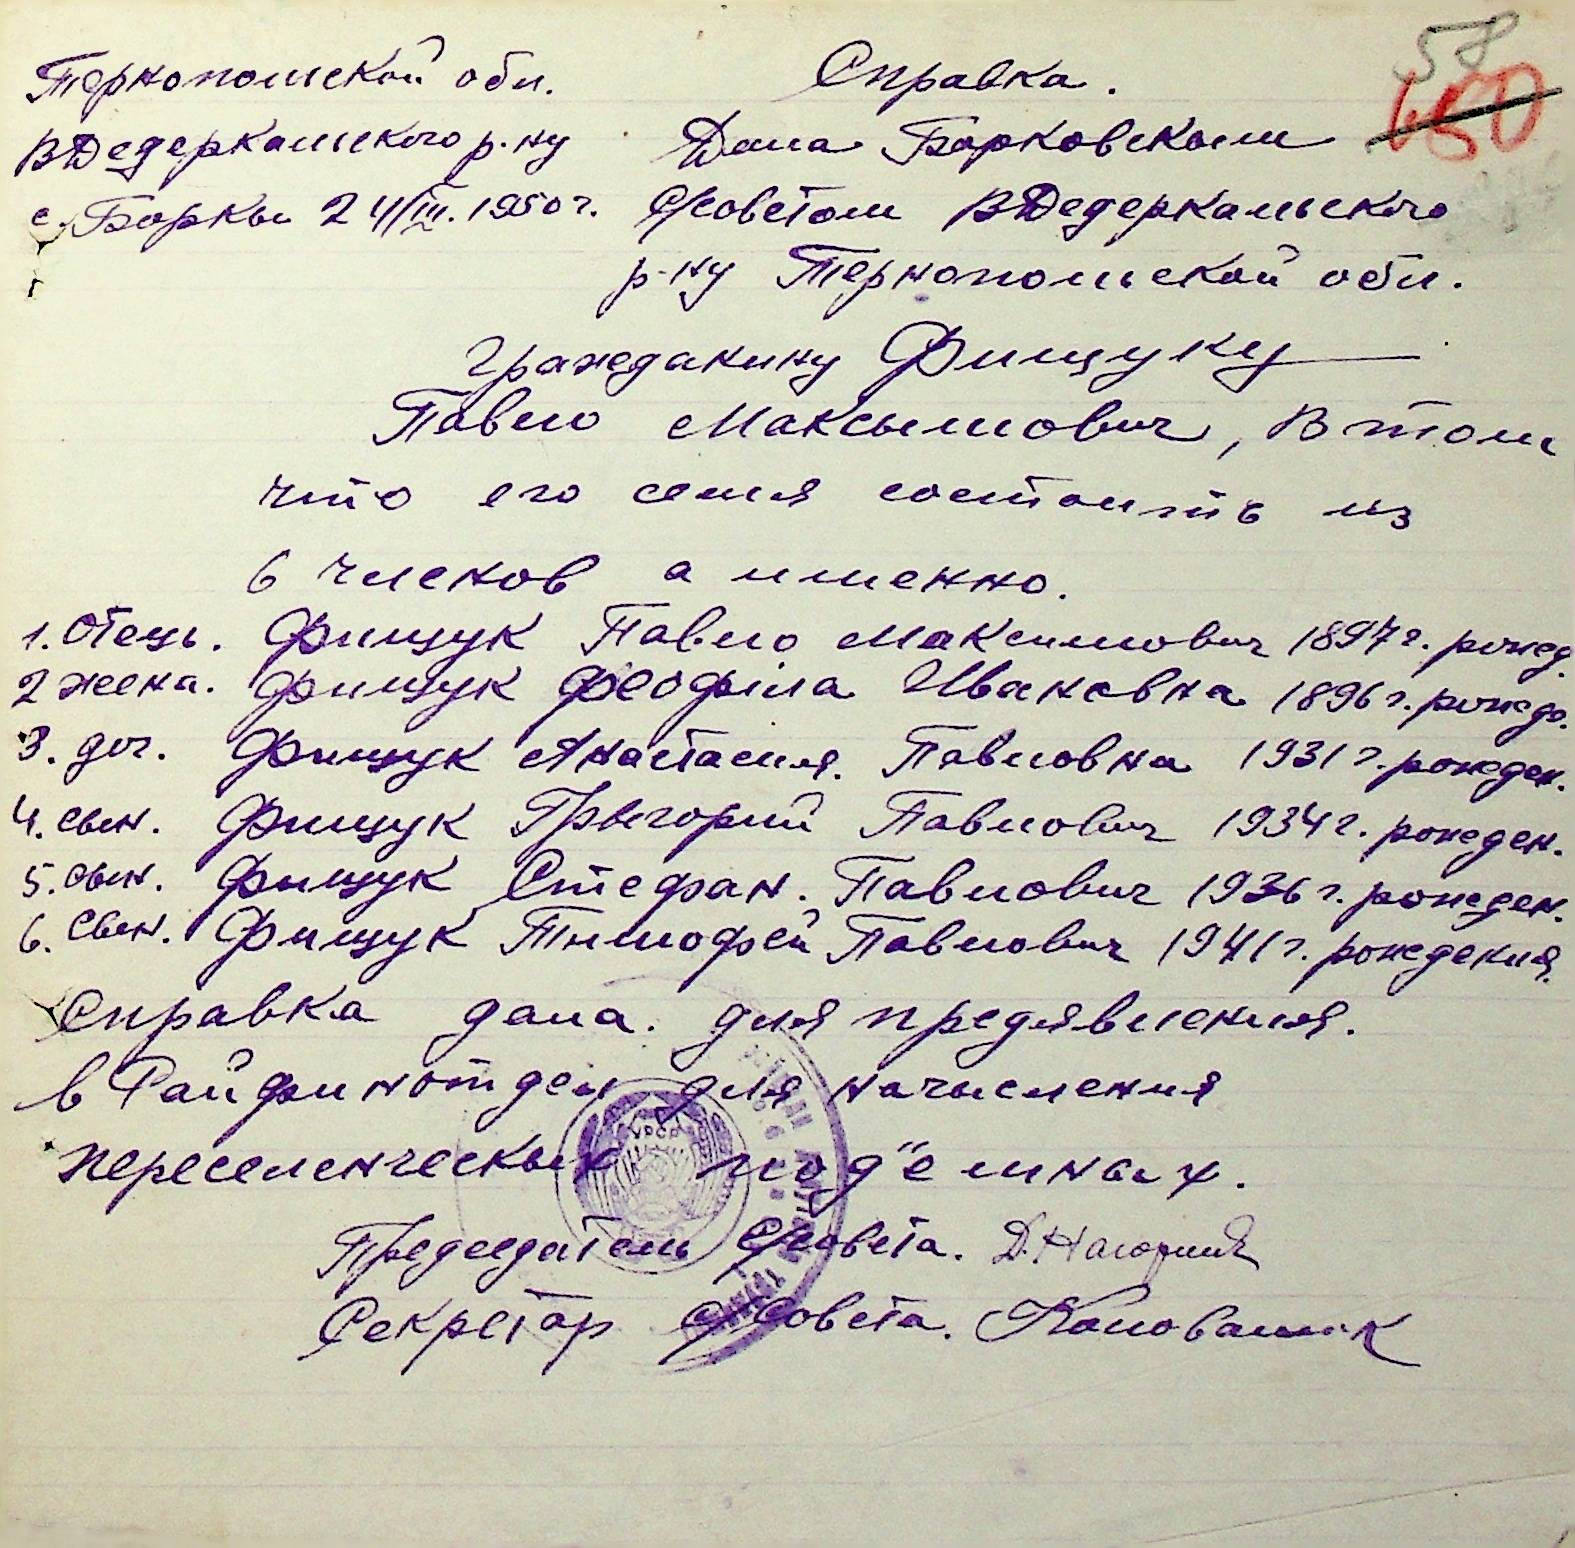 58
450
Тернопольской обл.
ВДедеркальского р-ну
с. Боркы 24/III. 1950 г.
Справка.
Дана Борковскым
С/советом ВДедеркальского
р-ну Тернопольской обл.
гражданину Фищуку
Павло Максымович, в том
что его семя состоить из
6 членов а именно.
1. Отець. Фищук Павло Максимович 1897 г. рожд.
2 жена. Фищук Феофіла Ивановна 1896 г. рождо.
3. доч. Фищук Анастасия. Павловна 1931 г. рожден.
4. сын. Фищук Грыгорий Павлович 1934 г. рожден.
5. сын. Фыщук Стефан. Павлович 1936 г. рожден.
6. сын. Фищук Тимофей Павлович 1941 г. рождения.
Справка дана. для предявления.
в Райфинотдел для начысления
переселенческых под"емных.
УРСР
Председатель С/совета. Д. Нагорний
Секретар С/совета.